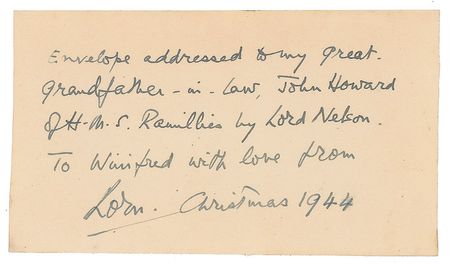 Envelope addressed to my Great-
Grandfather-in-law, John Howard
of H.M.S. Ramillies by Lord Nelson.
To Winifred with love from
Lorn. Christmas 1944